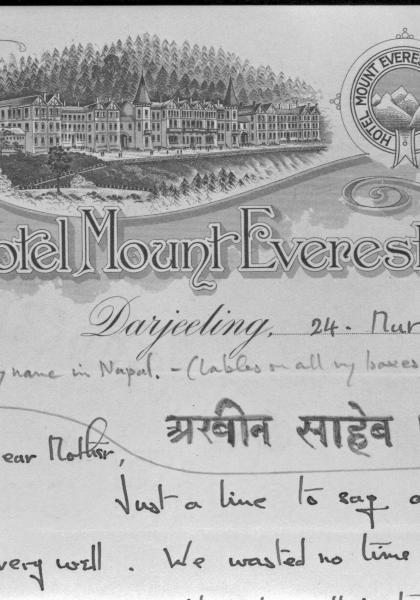 HOTEL MOUNT EVEREST
otel Mount Everest
Darjeeling, 24. Mar
name in Napal. - (Lables on all my boxes
अरबीन साहेब
ear Mother,
Just a line to say
very well. We wasted no time